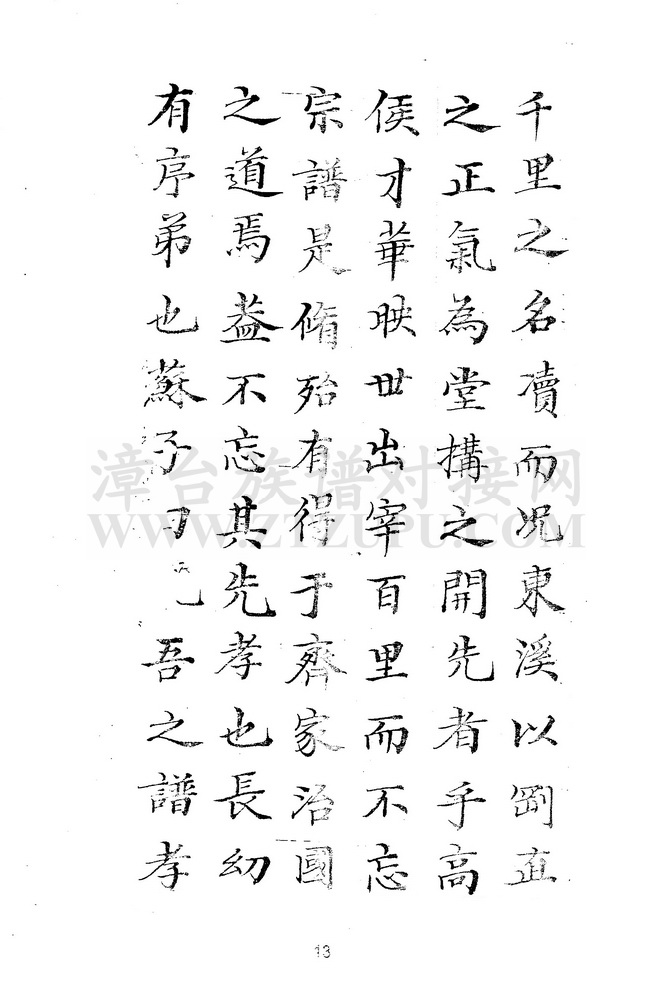 千里之名凟而况東溪以剛直
之正氣為堂搆之開先者乎高
侯才華映世出宰百里而不忘
宗譜是脩殆有得于齊家治國
之道焉葢不忘其先孝也長幼
有序弟也蘇子
吾之譜孝
漳台族谱对接网
WWW.ZTZUPU.COM
13